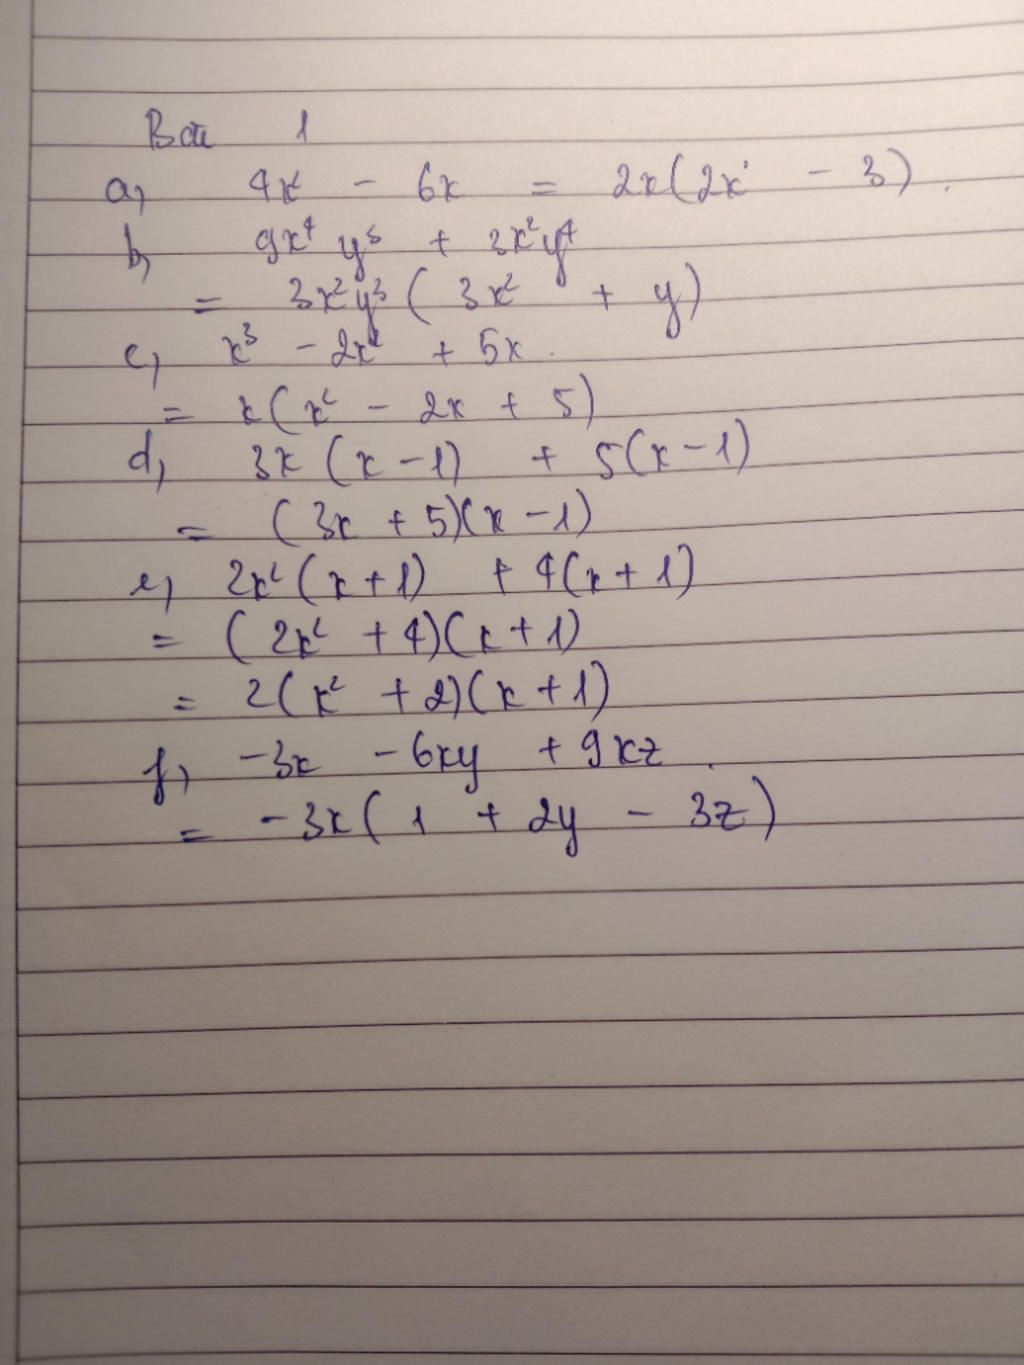 Bài 1
a, 4x² - 6x = 2x(2x - 3).
b, 9x⁴y³ + 3x²y⁴
= 3x²y³ ( 3x² + y)
c, x³ - 2x² + 5x.
= x(x² - 2x + 5)
d, 3x (x - 1) + 5(x - 1)
= (3x + 5)(x - 1)
e, 2x² (x + 1) + 4(x + 1)
= (2x² + 4)(x + 1)
= 2(x² + 2)(x + 1)
f, -3x - 6xy + 9xz.
= -3x( 1 + 2y - 3z)